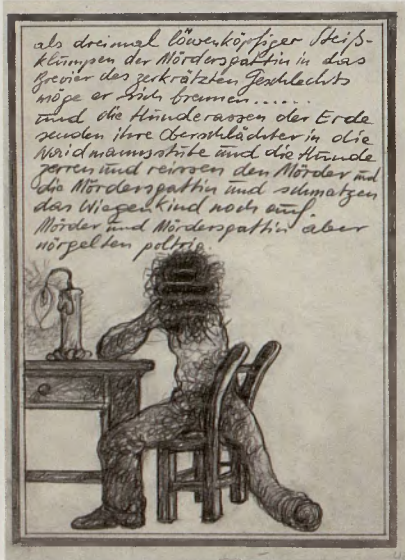 als dreimal löwenköpfiger Steiß-
klumpen der Mördersgattin in das
Brevier des zerkrätzten Geschlechts
möge er sich brennen......
und die Hunderassen der Erde
senden ihre Oberschlächter in die
Waidmannsstube und die Hunde
zerren und reissen den Mörder und
die Mördersgattin und schmatzen
das Wiegenkind noch auf.
Mörder und Mördersgattin aber
nörgelten poltrig.